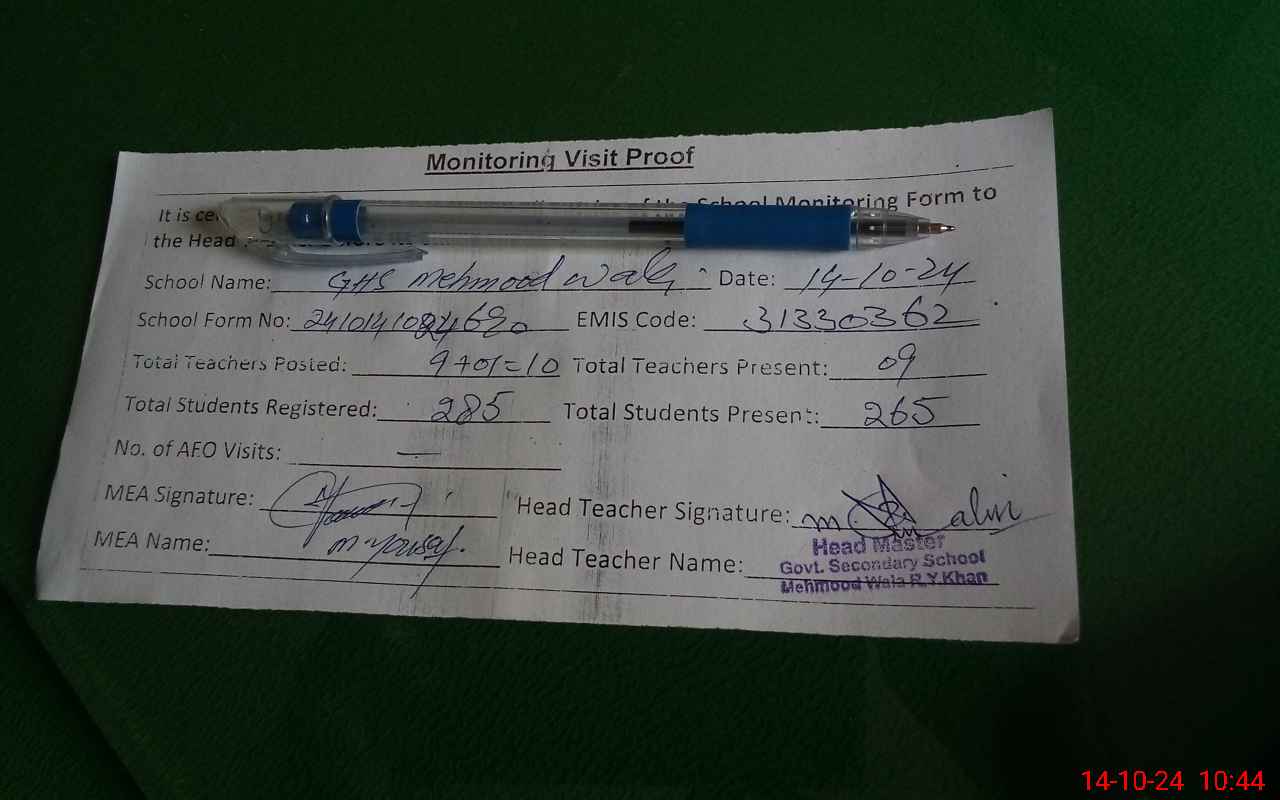 Monitoring Visit Proof
It is School Monitoring Form to
the Head
School Name: GHS Mehmood Wala Date: 14-10-24
School Form No: EMIS Code: 31330362
Total Teachers Posted: 9+01=10 Total Teachers Present: 09
Total Students Registered: 285 Total Students Present: 265
No. of AEO Visits: —
MEA Signature: Head Teacher Signature:
MEA Name: M. Yousaf. Head Teacher Name:
Head Master
Govt. Secondary School
Mehmood Wala R.Y.Khan
14-10-24 10:44